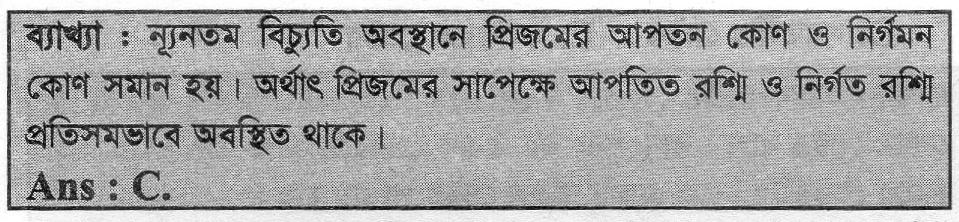 ব্যাখ্যা : ন্যূনতম বিচ্যুতি অবস্থানে প্রিজমের আপতন কোণ ও নির্গমন
কোণ সমান হয়। অর্থাৎ প্রিজমের সাপেক্ষে আপতিত রশ্মি ও নির্গত রশ্মি
প্রতিসমভাবে অবস্থিত থাকে।
Ans : C.